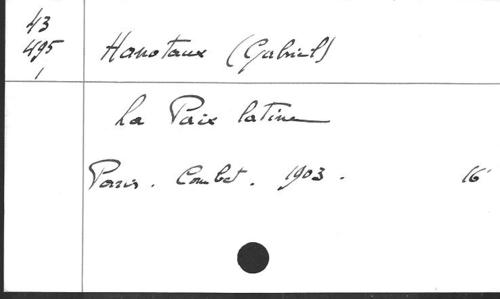 43
495
1
Hanotaux (Gabriel)
La Paix latine
Paris. Combet. 1903. 16°